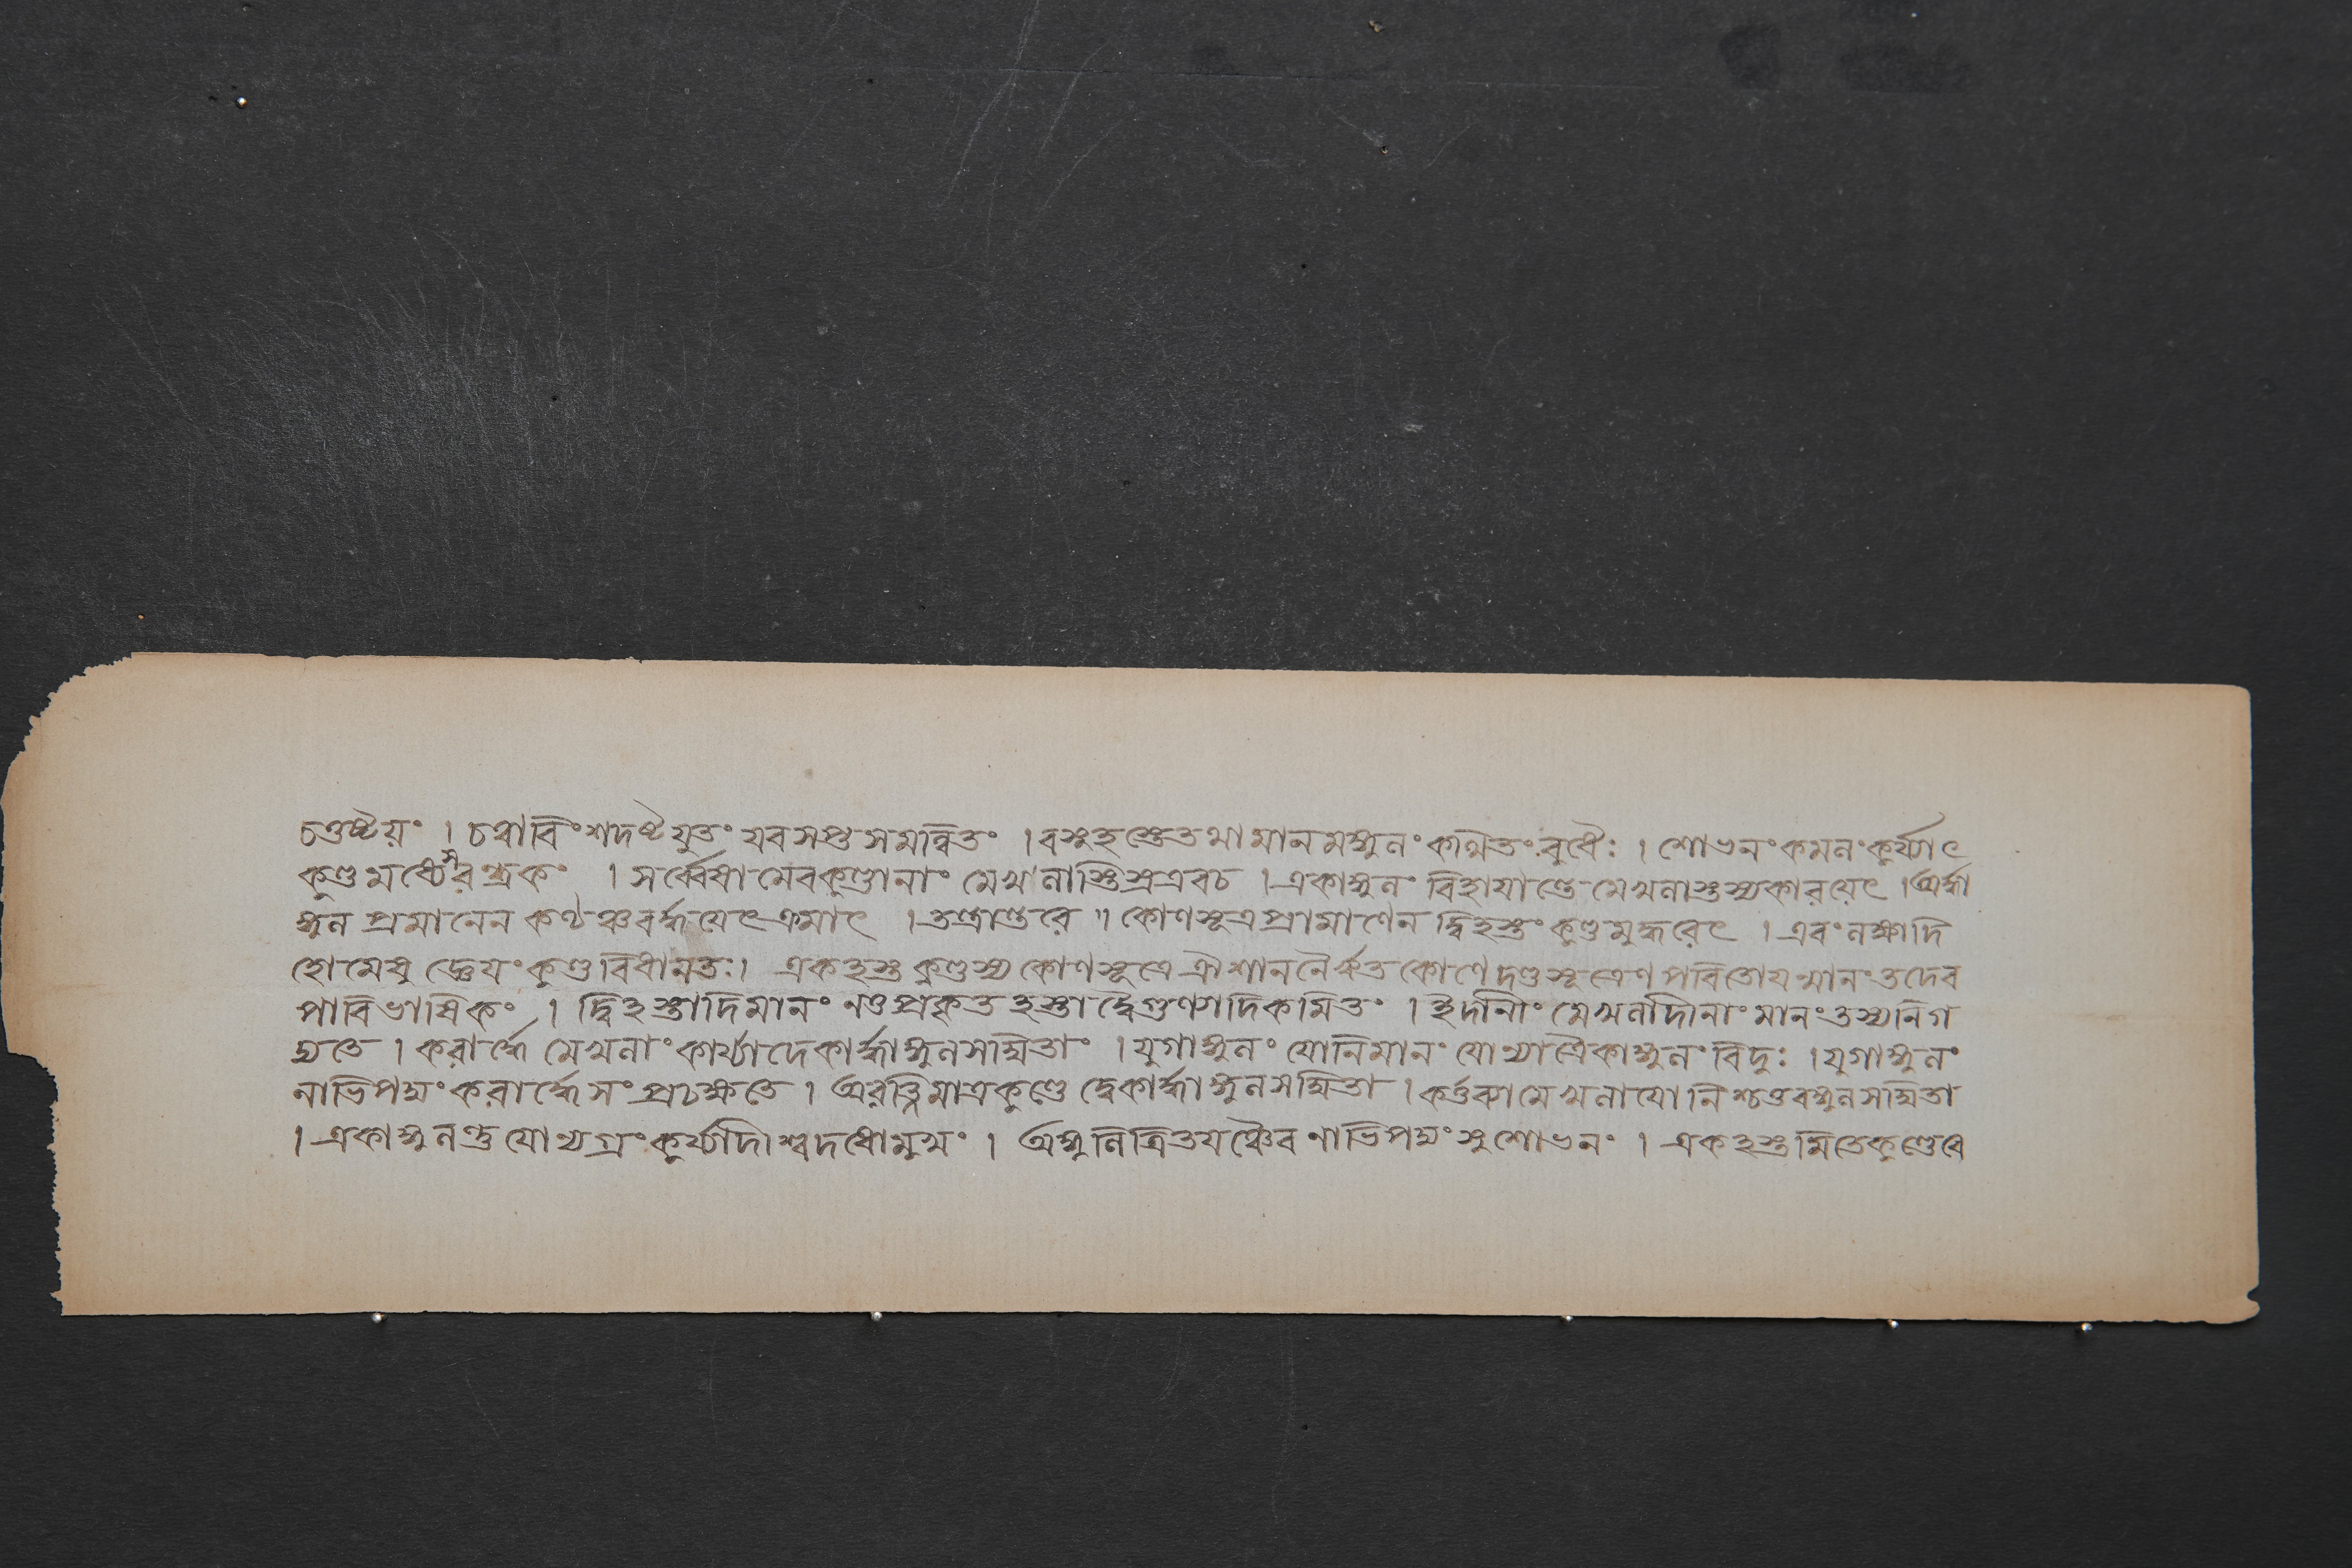 চতুষ্টয়ং । চত্বারিংশদষ্টযুতং যবসপ্তসমন্বিতং । বসুহস্তে তথা মানমঙ্গুলং কথিতং বুধৈঃ । শোভনং কমলং কুর্য্যাৎ
কুণ্ডমধ্যে । সর্ব্বেষামেব কুণ্ডানাং মেখলাস্তিস্র এবচ । একাঙ্গুলং বিহায়ান্তে মেখলাস্তস্য কারয়েৎ । অর্দ্ধা
ঙ্গুল প্রমানেন কণ্ঠঞ্চ বর্দ্ধয়েৎ ক্রমাৎ । তন্ত্রান্তরে ॥ কোণসূত্রপ্রামাণেন দ্বিহস্তং কুণ্ডমুদ্ধরেৎ । এবং লক্ষাদি
হোমেষু জ্ঞেয়ং কুণ্ডবিধানতঃ। একহস্ত কুণ্ডস্য কোণসূত্রে ঐশাননৈর্ঋত কোণে দণ্ডসূত্রেণ পরিতো যন্মানং তদেব
পারিভাষিকং । দ্বিহস্তাদিমানং নতু প্রকৃত হস্তাদ্বৈগুণ্যাদিকমিতং । ইদানীং মেখলাদীনাং মানং তস্য নিগ
দ্যতে । করার্দ্ধে মেখলাং কার্য্যাদেকার্দ্ধাঙ্গুলসম্মিতাং । যুগাঙ্গুলং যোনিমানং যোন্যাগ্রৈকাঙ্গুলং বিদুঃ । যুগাঙ্গুলং
নাভিপদ্মং করার্দ্ধে সংপ্রচক্ষতে । অরত্নিমাত্রকুণ্ডে দ্বেকার্দ্ধাঙ্গুলসম্মিতা । কর্ত্তব্যা মেখলা যোনিশ্চতুরঙ্গুলসম্মিতা
। একাঙ্গুলন্তু যোন্যগ্রং কুর্য্যাদীশ্বদধোমুখং । অঙ্গুলিত্রিতয়ঞ্চৈব নাভিপদ্মং সুশোভনং । একহস্তমিতে কুণ্ডে বে